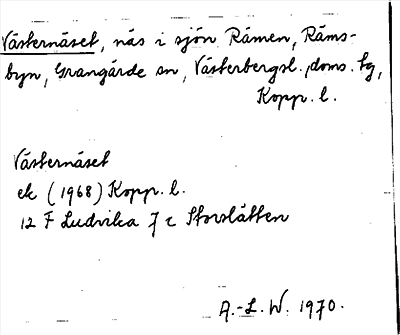 Västernäset, näs i sjön Rämen, Räms-
byn, Grangärde sn, Västerbergsl. doms. tg,
Kopp. l.
Västernäset
ek (1968) Kopp. l.
12 F Ludvika 7 c Storslätten
A.-L. W. 1970.